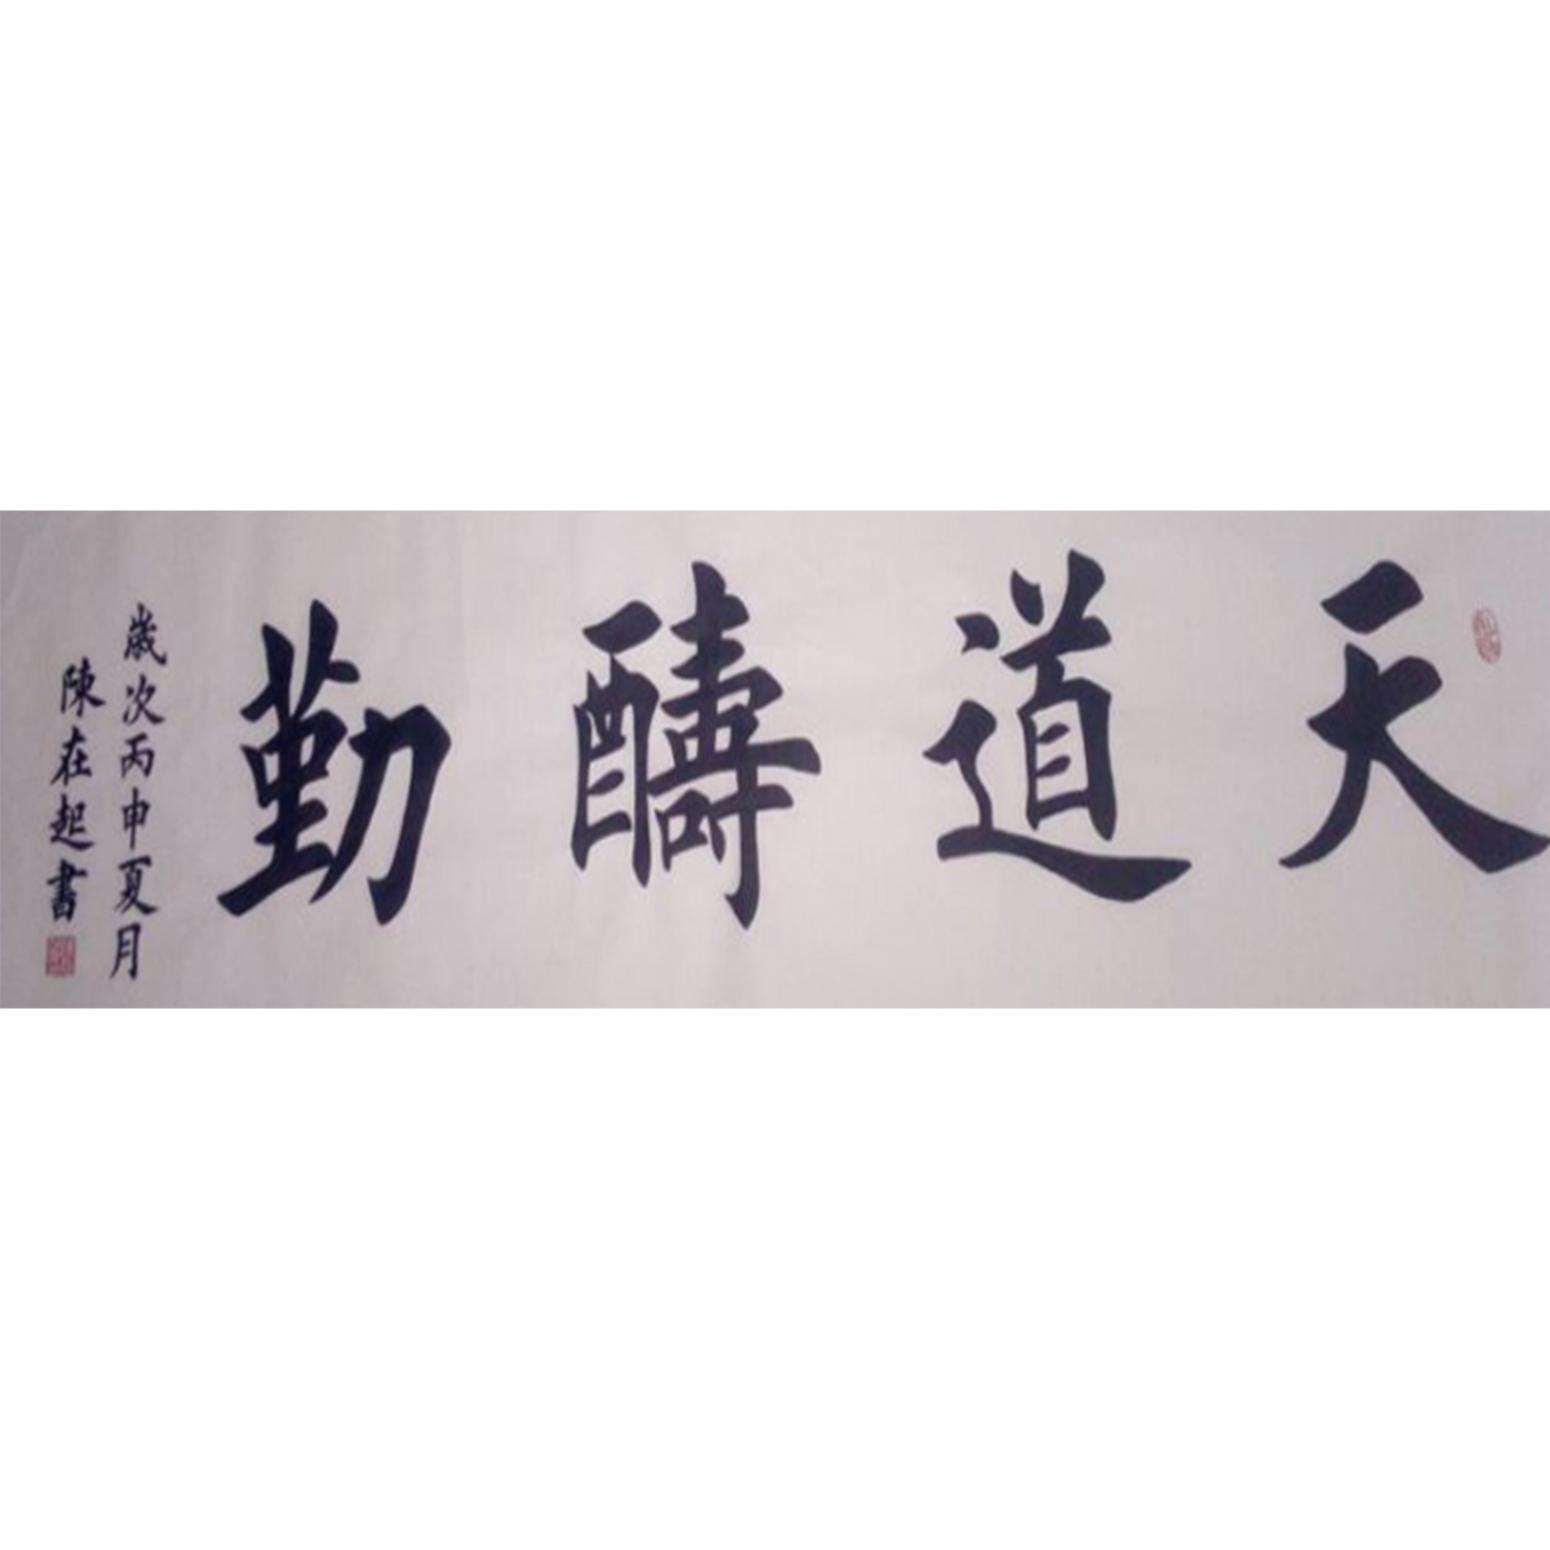 天道醻勤
歲次丙申夏月
陳在起書